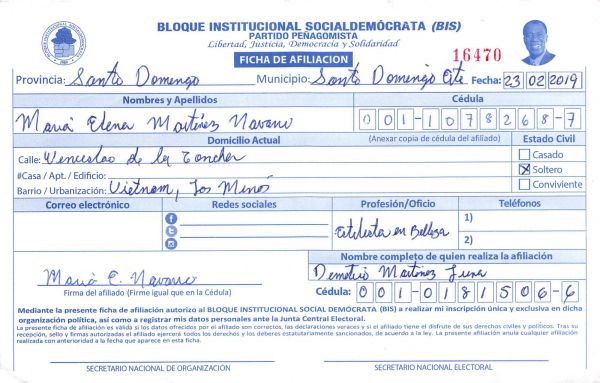 BLOQUE INSTITUCIONAL SOCIALDEMÓCRATA (BIS)
PARTIDO PEÑAGOMISTA
Libertad, Justicia, Democracia y Solidaridad
FICHA DE AFILIACION
16470
Provincia: Santo Domingo Municipio: Santo Domingo Este Fecha: 23 02 2019
Nombres y Apellidos Cédula
María Elena Martínez Navano 001-1078268-7
Domicilio Actual (Anexar copia de cédula del afiliado) Estado Civil
Calle: Wenceslao de la Concha
Casado
#Casa / Apt. / Edificio:
Soltero
Barrio / Urbanización: Vietnam, Los Minos
Conviviente
Correo electrónico Redes sociales Profesión/Oficio Teléfonos
1)
Estilista en Belleza
2)
Nombre completo de quien realiza la afiliación
María E. Navano
Demetrio Martinez
Firma del afiliado (Firme igual que en la Cédula)
Cédula: 001-0181506-6
Mediante la presente ficha de afiliación autorizo al BLOQUE INSTITUCIONAL SOCIAL DEMÓCRATA (BIS) a realizar mi inscripción única y exclusiva en dicha
organización política, así como a registrar mis datos personales ante la Junta Central Electoral.
La presente ficha de afiliación es válida si los datos ofrecidos por el afiliado son correctos, las declaraciones veraces y si el afiliado tiene el disfrute de sus derechos civiles y políticos. Tras su
recepción, sello y firmas autorizadas el afiliado ejercerá todos los derechos y los deberes estatutariamente sancionados, de acuerdo a la ley. La presente afiliación anula cualquier afiliación
realizada con anterioridad a la fecha que aparece en esta ficha.
SECRETARIO NACIONAL DE ORGANIZACIÓN SECRETARIO NACIONAL ELECTORAL